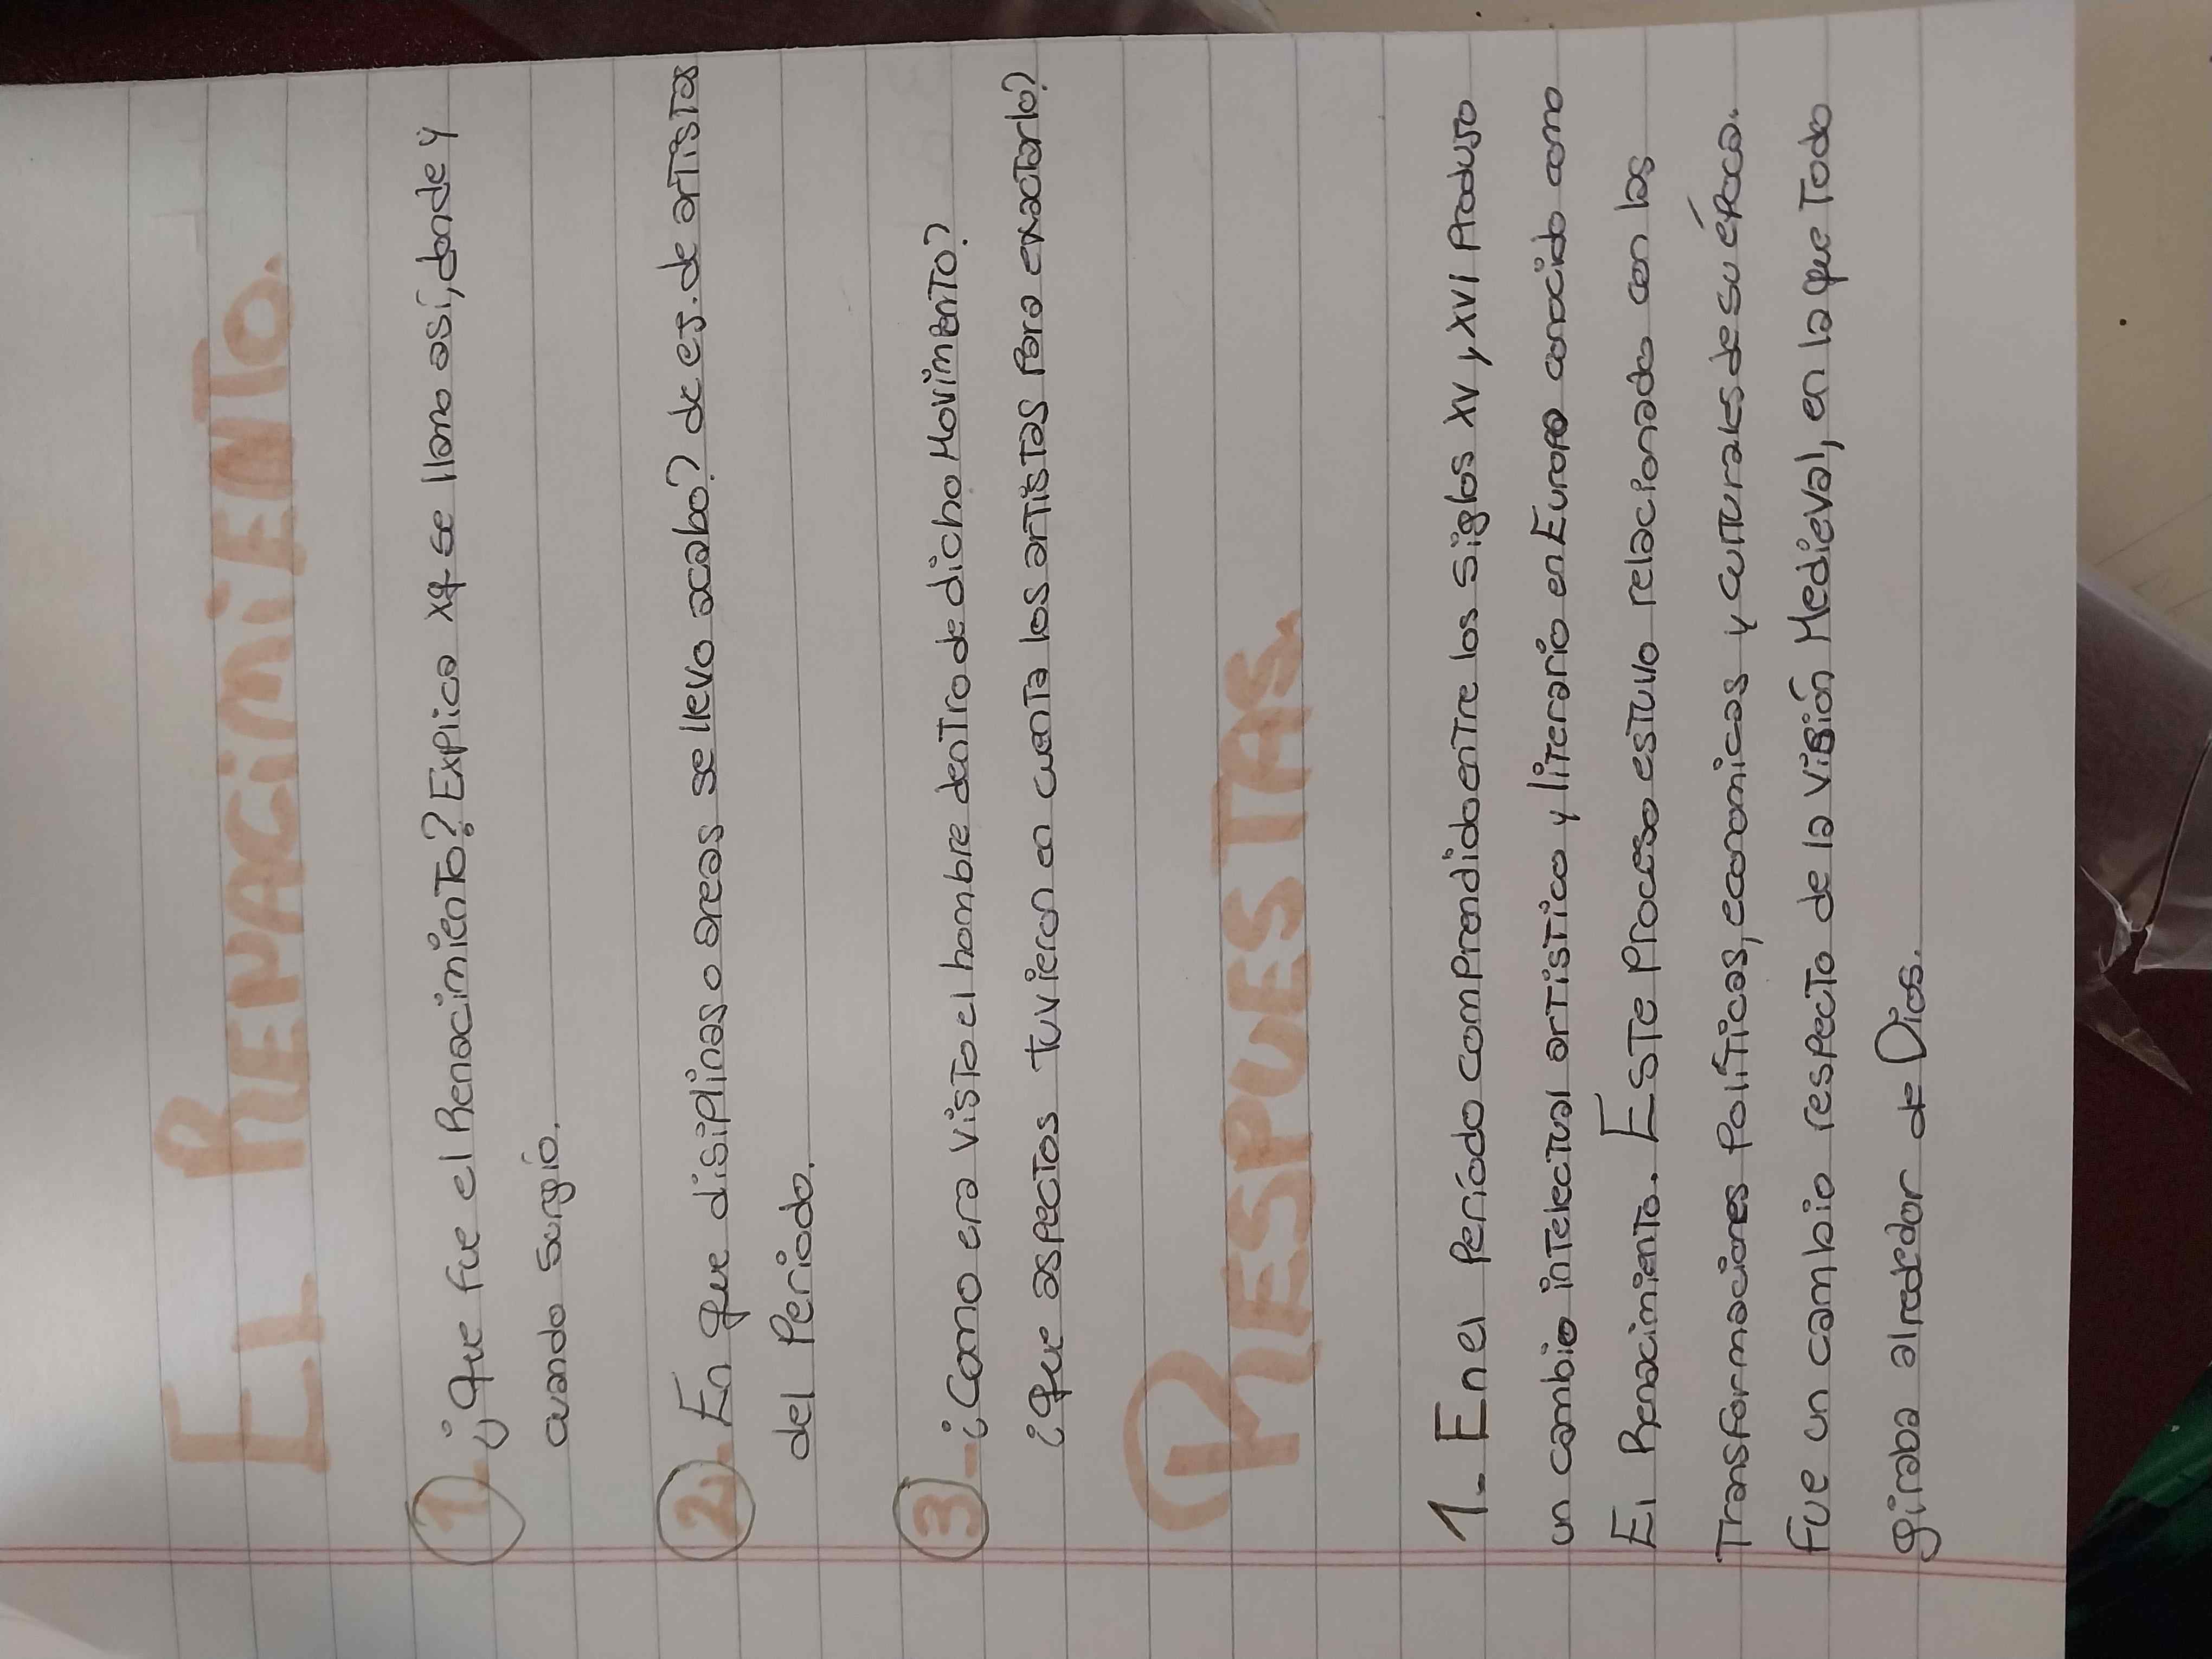 El RENACiMiENTO.
1- ¿Que fue el Renacimiento? Explica xq se llamo así, donde y
cuando surgío.
2- En que disiplinas o areas se llevo acabo? de ej. de artistas
del Periodo.
3- ¿Como era visto el hombre dentro de dicho Movimiento?
¿Que aspectos tuvieron en cuenta los artistas para exactarlo?
RESPUESTAS.
1- En el Período comprendido entre los siglos XV y XVI Produjo
un cambio intelectual artístico y literario en Europa conocido como
El Renacimiento. Este Proceso estuvo relacionado con las
Transformaciones Políticas, economicas y culturales de su época.
Fue un cambio respecto de la visión Medieval, en la que Todo
giraba alrededor de Dios.